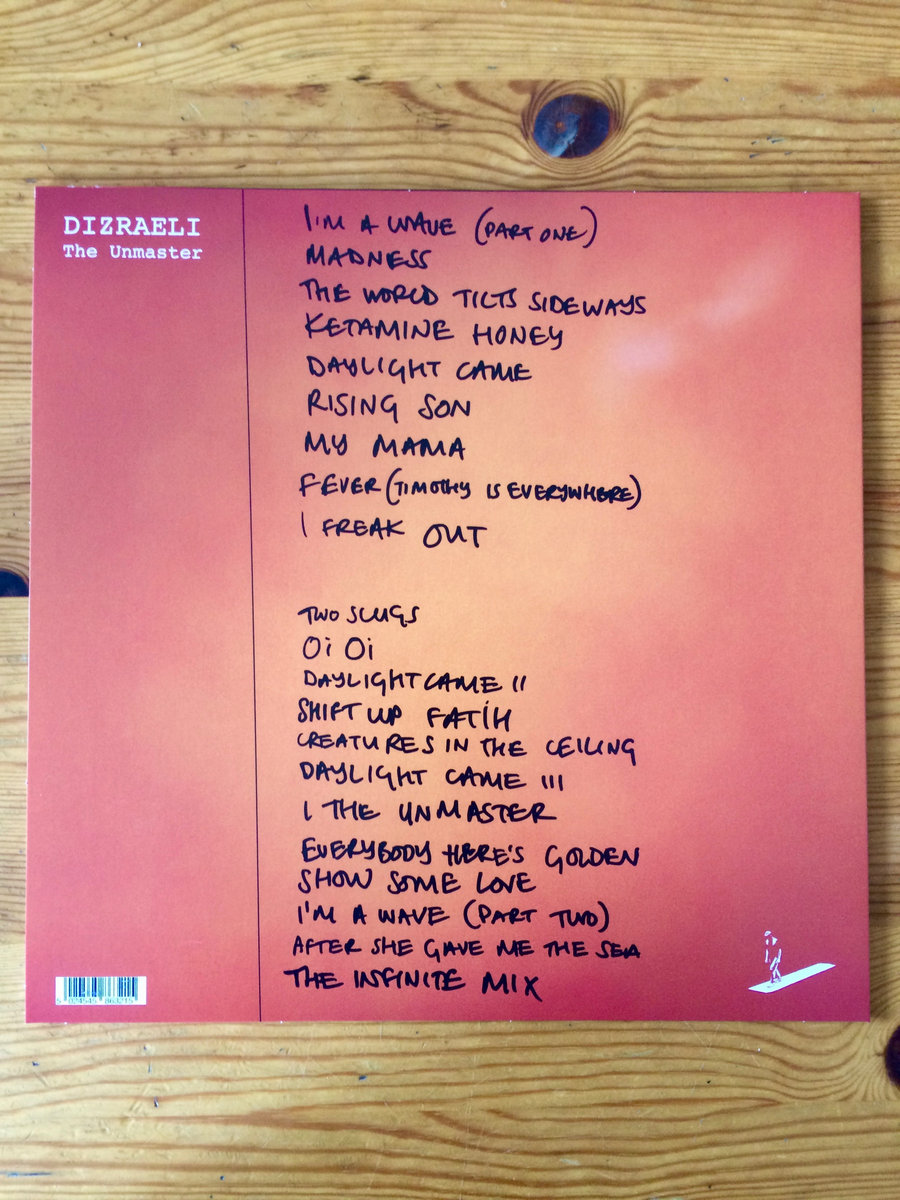 DIZRAELI
The Unmaster
I'M A WAVE (PART ONE)
MADNESS
THE WORLD TILTS SIDEWAYS
KETAMINE HONEY
DAYLIGHT CAME
RISING SON
MY MAMA
FEVER (TIMOTHY IS EVERYWHERE)
I FREAK OUT
TWO SLUGS
Oi Oi
DAYLIGHT CAME II
SHIFT UP FATİH
CREATURES IN THE CEILING
DAYLIGHT CAME III
I THE UNMASTER
EVERYBODY HERE'S GOLDEN
SHOW SOME LOVE
I'M A WAVE (PART TWO)
AFTER SHE GAVE ME THE SEA
THE INFINITE MIX
5 024545 863215